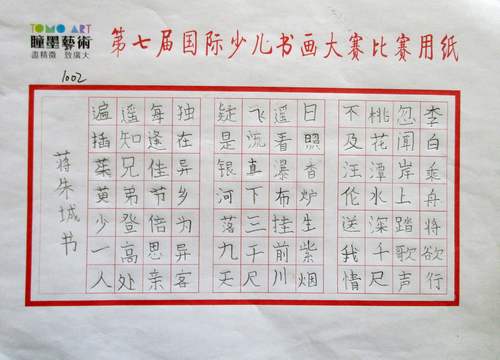 TOMO ART
瞳墨藝術
盡精微 致廣大
第七届国际少儿书画大赛比赛用纸
1002
李白乘舟将欲行
忽闻岸上踏歌声
桃花潭水深千尺
不及汪伦送我情
日照香炉生紫烟
遥看瀑布挂前川
飞流直下三千尺
疑是银河落九天
独在异乡为异客
每逢佳节倍思亲
遥知兄弟登高处
遍插茱萸少一人
蒋朱城书